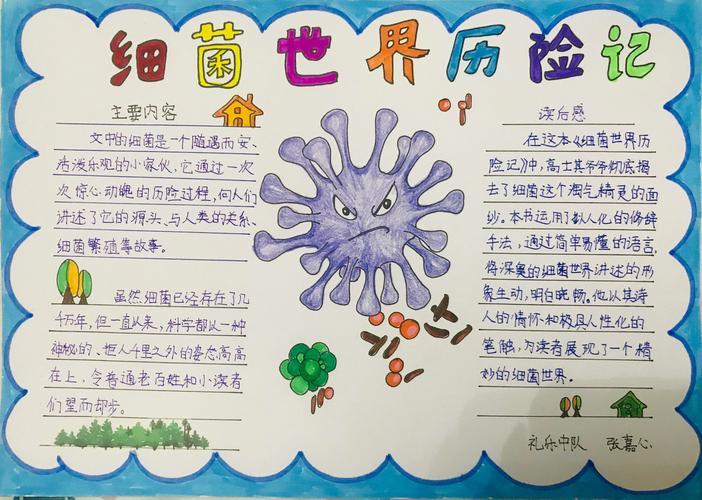 细菌世界历险记
主要内容
文中的细菌是一个随遇而安、
浩漫乐观的小家伙,它通过一次
次惊心动魄的历险过程,向人们
讲述了它的源头、与人类的关系、
细菌繁殖等故事。
虽然细菌已经存在了几
千万年,但一直以来,科学都以一种
神秘的、拒人千里之外的姿态高高
在上,令普通老百姓和小读者
们望而却步。
读后感
在这本《细菌世界历
险记》中,高士其爷爷彻底揭
去了细菌这个淘气精灵的面
纱。本书运用了拟人化的修辞
手法,通过简单易懂的语言,
将深奥的细菌世界讲述的形
象生动,明白晓畅。他以其诗
人的情怀和极具人性化的
笔触,为读者展现了一个精
妙的细菌世界。
礼乐中队 张嘉心